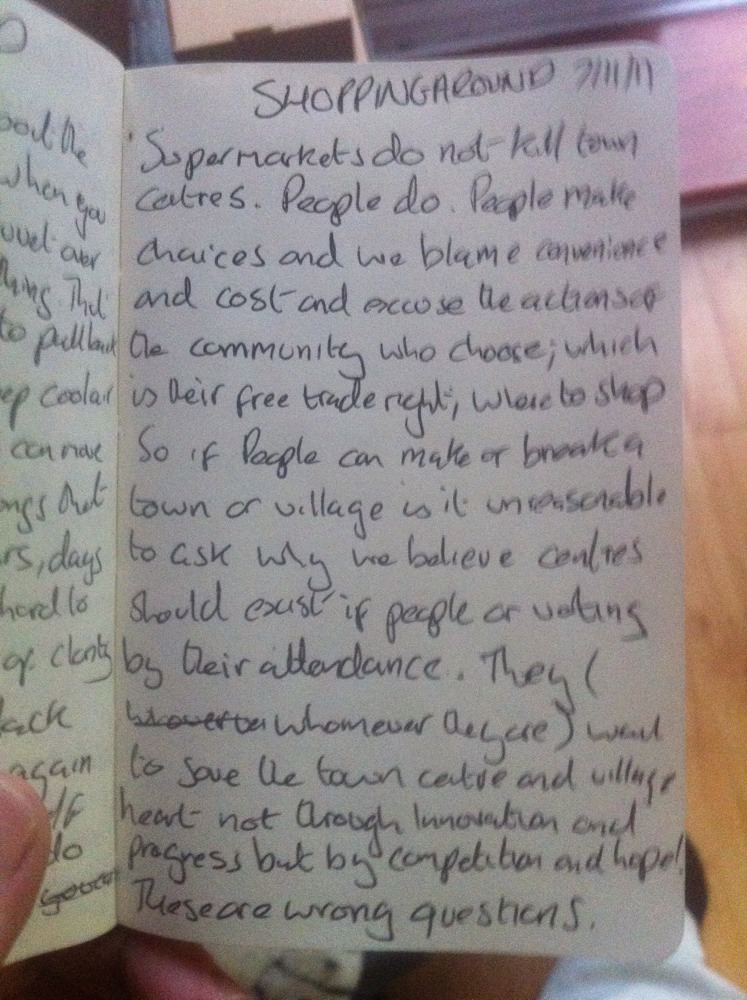 ood the
when you
over
thing. That
to pull back
ep coolar
can make
ongs that
rs, days
hard to
of clarity
lack
again
If
do
SHOPPINGAROUND 7/11/11
Supermarkets do not kill town
centres. People do. People make
choices and we blame convenience
and cost and excuse the actions of
the community who choose; which
is their free trade right; where to shop
So if People can make or break a
town or village is it unreasonable
to ask why we believe centres
should exist if people or voting
by their attendance. They (
whomever they are) want
to save the town centre and village
heart not through Innovation and
progress but by competition and hope!
These are wrong questions.